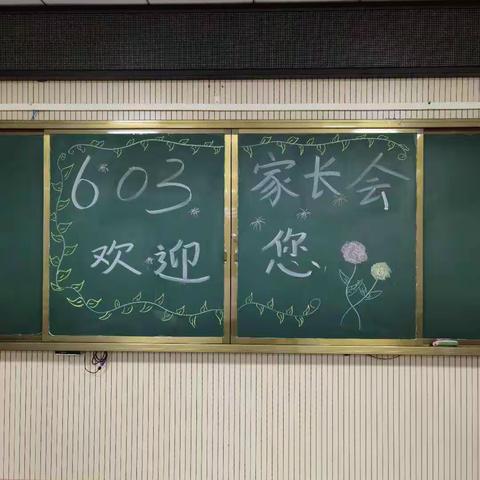 603 家长会
欢迎 您